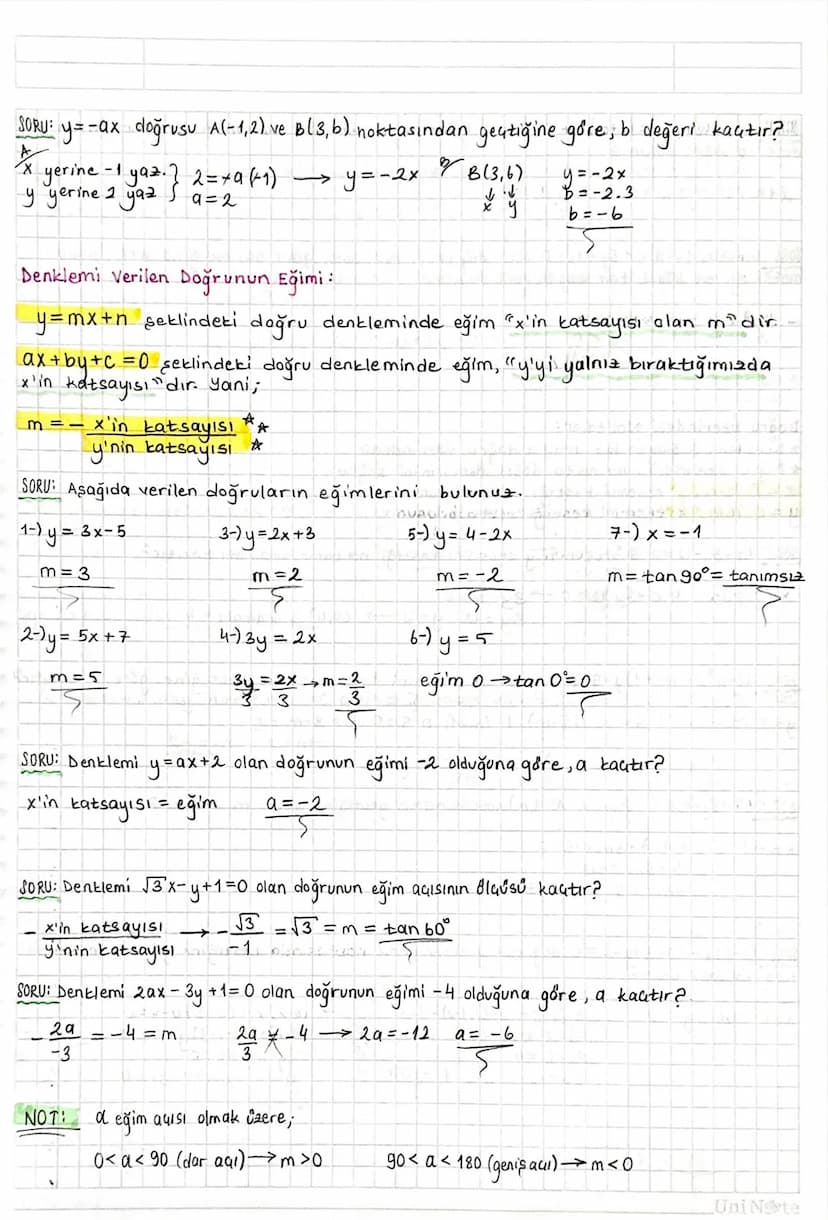 SORU: y=-ax doğrusu A(-1,2) ve B(3,b) noktasından geçtiğine göre, b değeri kaçtır?
A
x yerine -1 yaz.
y yerine 2 yaz } 2=-a(-1) → y=-2x B(3,b) y=-2x
a=2 x y b=-2.3
b=-6
Denklemi Verilen Doğrunun Eğimi:
y=mx+n şeklindeki doğru denkleminde eğim "x'in katsayısı olan m" dir.
ax+by+c=0 şeklindeki doğru denkleminde eğim, "y'yi yalnız bıraktığımızda
x'in katsayısı" dır. Yani;
m = - x'in katsayısı
y'nin katsayısı
SORU: Aşağıda verilen doğruların eğimlerini bulunuz.
1-) y= 3x-5 3-) y=2x+3 5-) y= 4-2x 7-) x=-1
m=3 m=2 m=-2 m=tan90°= tanımsız
2-) y= 5x+7 4-) 3y = 2x 6-) y = 5
m=5 3y/3 = 2x/3 → m=2/3 eğim 0 → tan 0°=0
SORU: Denklemi y=ax+2 olan doğrunun eğimi -2 olduğuna göre, a kaçtır?
x'in katsayısı = eğim a=-2
SORU: Denklemi √3x-y+1=0 olan doğrunun eğim açısının ölçüsü kaçtır?
- x'in katsayısı/y'nin katsayısı → -√3/-1 = √3 = m = tan 60°
SORU: Denklemi 2ax-3y+1=0 olan doğrunun eğimi -4 olduğuna göre, a kaçtır?
- 2a/-3 = -4 = m 2a/3 = -4 → 2a=-12 a= -6
NOT: α eğim açısı olmak üzere;
0<α<90 (dar açı) → m>0 90<α<180 (geniş açı) → m<0
UniNote